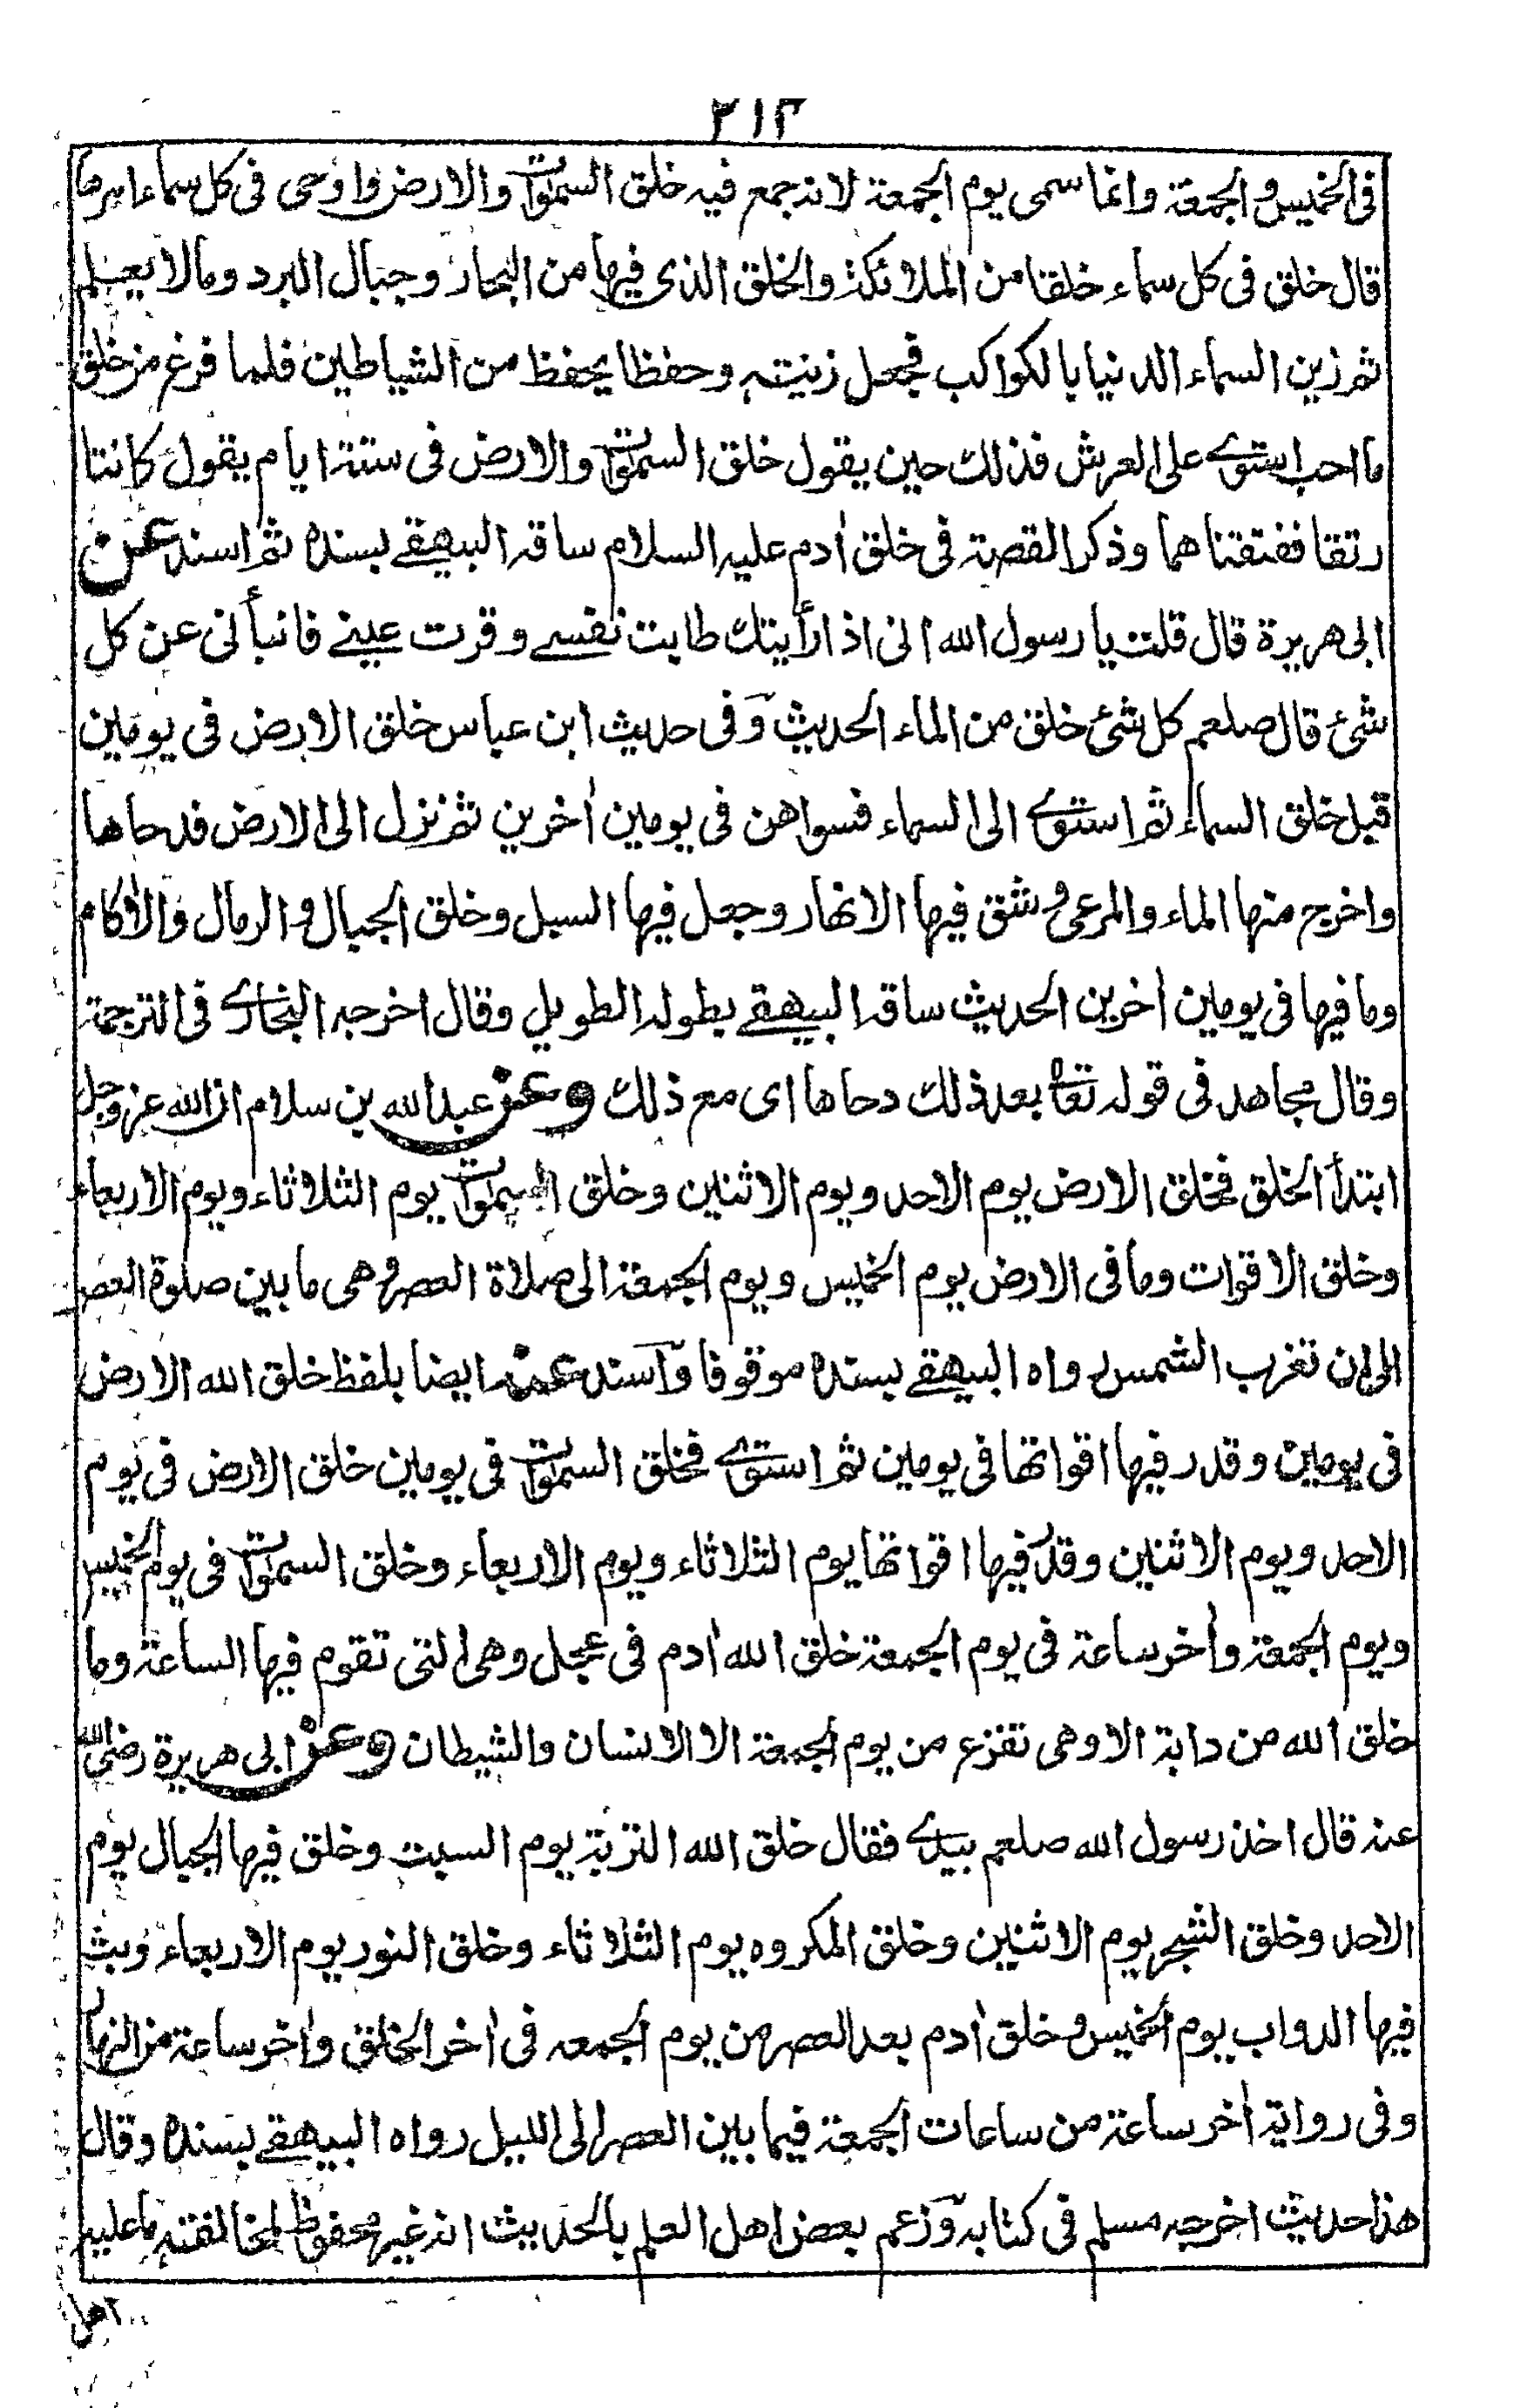 ٢١٣
فى الخميس والجمعة وانما سمى يوم الجمعة لانه جمع فيه خلق السموات والارض واوحى فى كل سماء امرها
قال خلق فى كل سماء خلقا من الملائكة والخلق الذى فيها من البحار وجبال البرد ومالا يعلم
ثم زين السماء الدنيا بالكواكب فجعل زنيته وحفظا يحفظ من الشياطين فلما فرغ من خلق
ما احب استوى على العرش فذلك حين يقول خلق السموات والارض فى ستة ايام يقول كانتا
رتقا ففتقناهما وذكر القصة فى خلق اٰدم عليه السلام ساقه البيهقے بسنده ثم اسند عن
ابى هريرة قال قلت يا رسول الله انى اذا رأيتك طابت نفسے وقرت عينے فانبأنى عن كل
شئ قال صلعم كل شئ خلق من الماء الحديث وفى حديث ابن عباس خلق الارض فى يومين
قبل خلق السماء ثم استوى الى السماء فسواهن فى يومين اٰخرين ثم نزل الى الارض فدحاها
واخرج منها الماء والمرعى وشق فيها الانهار وجعل فيها السبل وخلق الجبال والرمال والاٰكام
وما فيها فى يومين اٰخرين الحديث ساقه البيهقے بطوله الطويل وقال اخرجه البخارى فى الترجمة
وقال مجاهد فى قوله تعا بعد ذلك دحاها اى مع ذلك وعن عبد الله بن سلام ان الله عز وجل
ابتدأ الخلق فخلق الارض يوم الاحد ويوم الاثنين وخلق السموات يوم الثلاثاء ويوم الاربعاء
وخلق الاقوات وما فى الارض يوم الخميس ويوم الجمعة الى صلاة العصر وهى ما بين صلوة العصر
الى ان تغرب الشمس رواه البيهقے بسنده موقوفا واسند عنه ايضا بلفظ خلق الله الارض
فى يومين وقدر فيها اقواتها فى يومين ثم استوى فخلق السموات فى يومين خلق الارض فى يوم
الاحد ويوم الاثنين وقدر فيها اقواتها يوم الثلاثاء ويوم الاربعاء وخلق السموات فى يوم الخميس
ويوم الجمعة واٰخر ساعة فى يوم الجمعة خلق الله اٰدم فى عجل وهى التى تقوم فيها الساعة وما
خلق الله من دابة الا وهى تفزع من يوم الجمعة الا الانسان والشيطان وعن ابى هريرة رضى الله
عنه قال اخذ رسول الله صلعم بيدى فقال خلق الله التربة يوم السبت وخلق فيها الجبال يوم
الاحد وخلق الشجر يوم الاثنين وخلق المكروه يوم الثلاثاء وخلق النور يوم الاربعاء وبث
فيها الدواب يوم الخميس وخلق اٰدم بعد العصر من يوم الجمعه فى اٰخر الخلق واٰخر ساعة من النهار
وفى رواية اٰخر ساعة من ساعات الجمعة فيما بين العصر الى الليل رواه البيهقے بسنده وقال
هذا حديث اخرجه مسلم فى كتابه وزعم بعض اهل العلم بالحديث انه غير محفوظ لمخالفته ما عليه